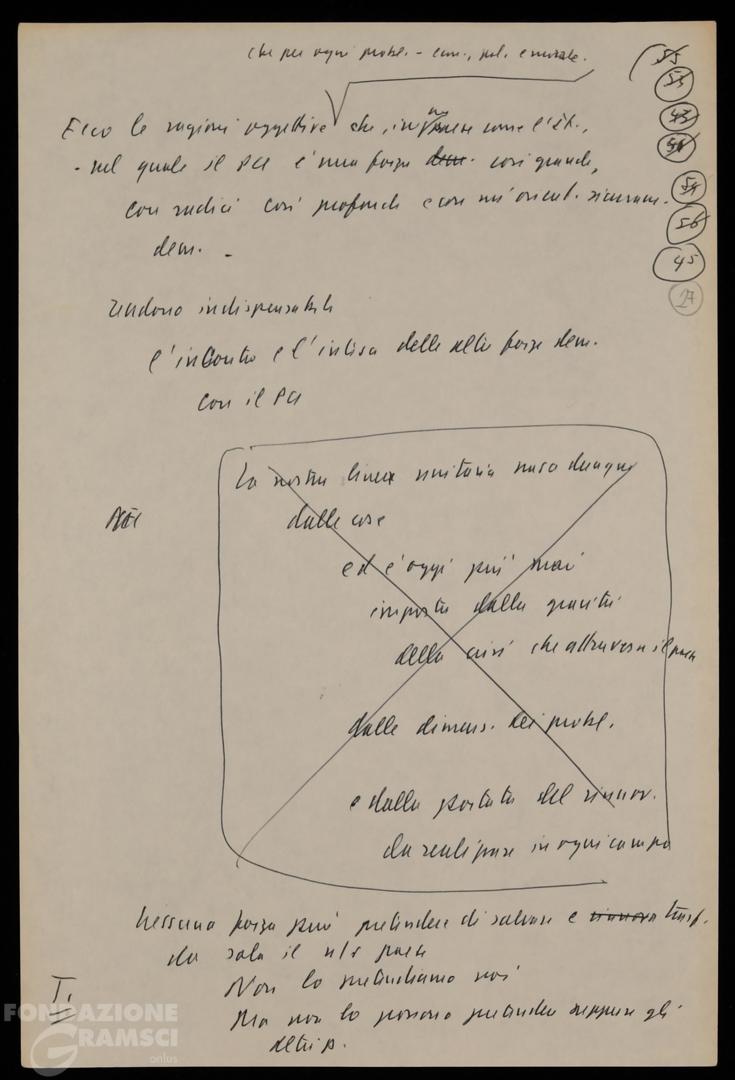 che per ogni probl. - econ., pol. e morale.
Ecco le ragioni oggettive che, in un paese come l'It.,
- nel quale il PCI è una forza dem. così grande,
con radici così profonde e con un'orient. sicuram.
dem. -
rendono indispensabili
l'incontro e l'intesa delle altre forze dem.
con il PCI
La nostra linea unitaria nasce dunque
dalle cose
ed è oggi più mai
imposta dalla gravità
della crisi che attraversa il paese
dalle dimens. dei probl.
e dalla portata del rinnov.
da realizzare in ogni campo
Nessuna forza può pretendere di salvare e rinnova trasf.
da sola il n/s paese
Non lo pretendiamo noi
Ma non lo possono pretendere neppure gli
altri p.
I.
55
53
43
54
56
45
27
FONDAZIONE
GRAMSCI
onlus